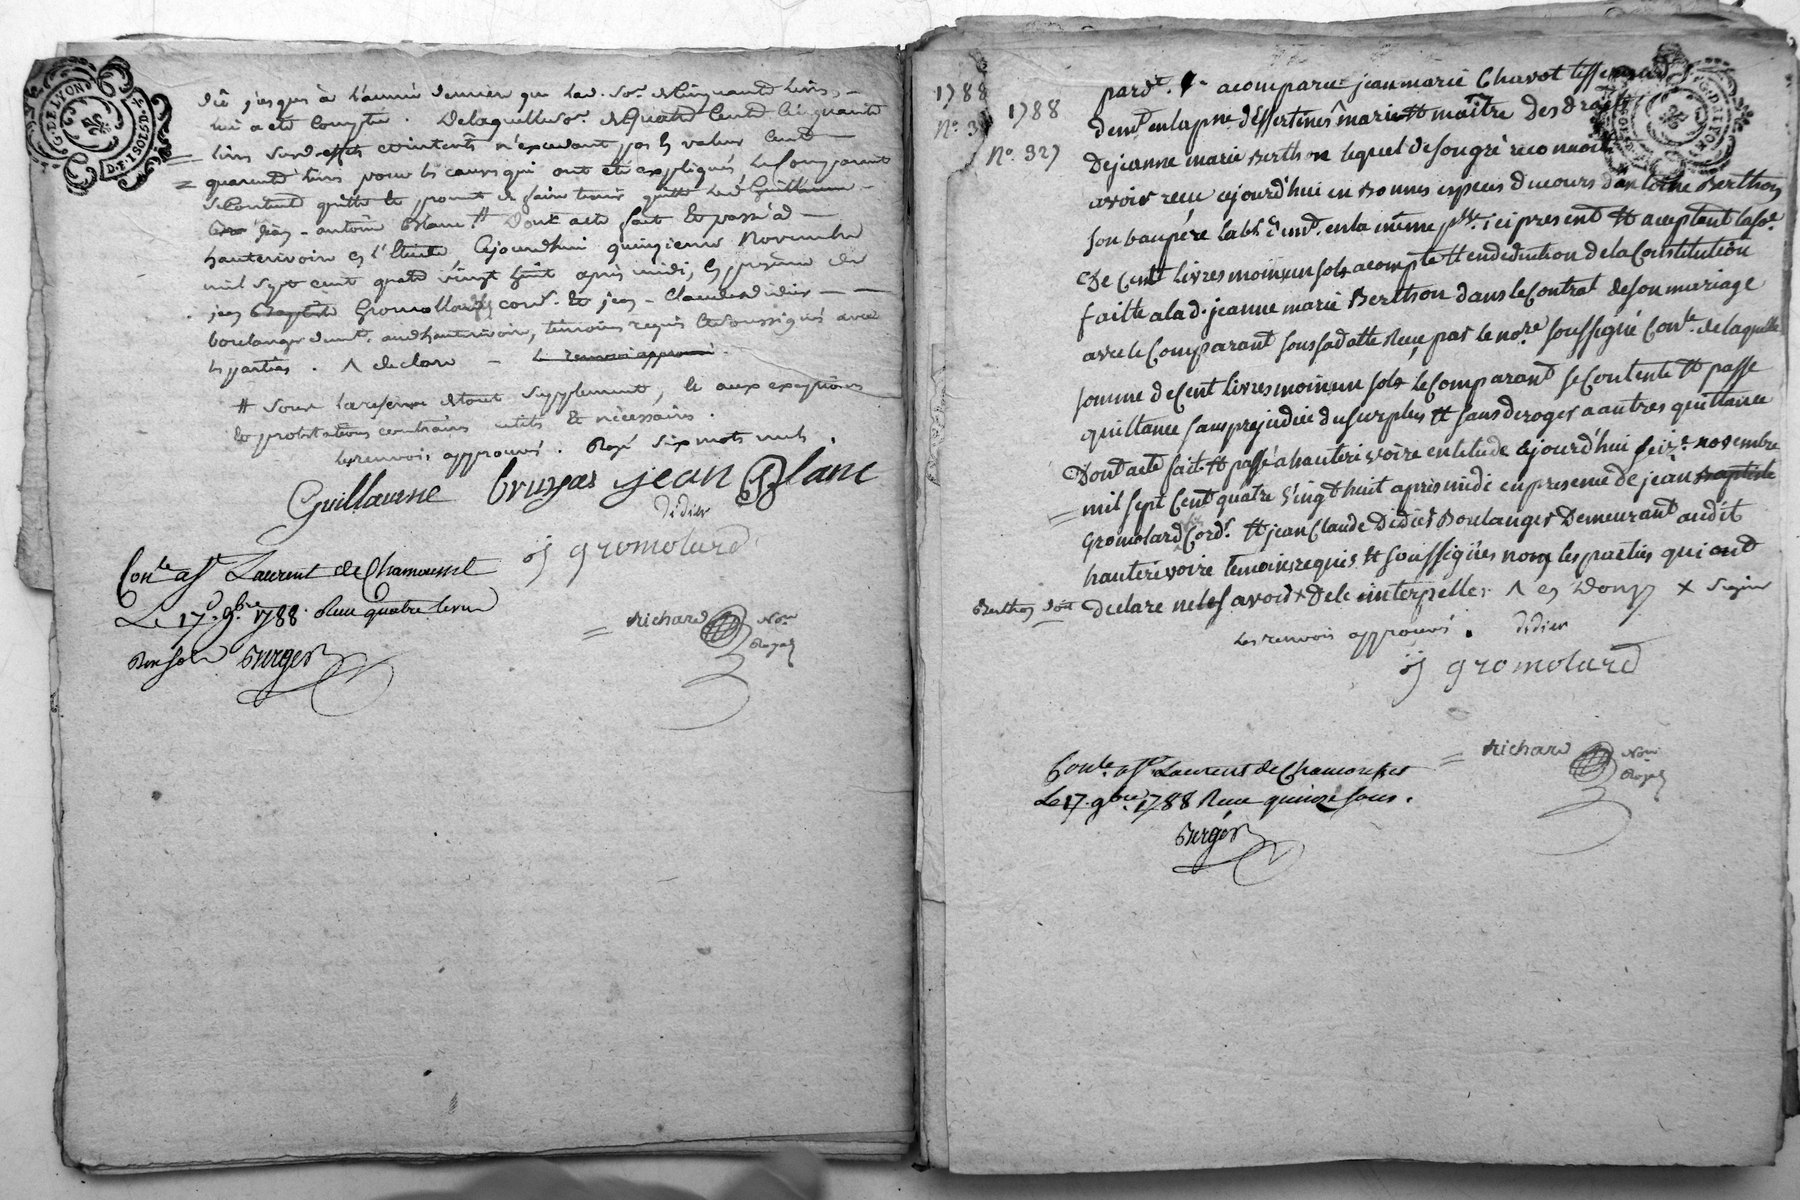 G. DE LYON
D. F. 1 SOL 8 D.
dû jusques à l'année derniere que lad. so.e de cinquante livres
lui a eté comptée. De laquelle so.e de quatre cents cinquante
livres lesd. effets n'excedant pas la valeur cent
quarante livres pour les causes qui ont été expliqués, le comparant
se contente quitte et promet de faire tenir quitte led. Guillaume
jean antoine Blanc # Dont acte fait et passé a
hauterivoire en l'étude, cejourdhui quinzieme Novembre
mil sept cent quatre vingt huit apres midi, en presence de
jean Baptiste Gromollard cord. et jean Claude didier
boulanger demt. aud. hauterivoire, temoins requis et soussignés avec
les parties . ^ declare le renvoi approuvé.
# sous la reserve de tout supplement, et aux exceptions
et protestations contraires utiles et nécessaires.
les renvois approuvés. Rayé six mots nuls.
Guillaume bruyas jean Blanc
didier
j gromolard
Con.le a St Laurent de Chamousset
Le 17. 9.bre 1788. Reçu quatre livres
dix sols Burger
richard Nore.
Royal
1788
N.o 3
1788
N.o 327
G. DE LYON
pard.t acomparu jean marie Chavot tisserand
dem.t en la p.sse d'Essertines mari et maitre des droits
de jeanne marie Berthon lequel de son gré reconnoit
avoir recu cejourd'hui en bonnes especes de cours d'antoine Berthon
son baupére lab.r dem.t en la même p.sse ici present et aceptant la so.e
De Cent livres moins un sols acompte et en deduction de la Constitution
faitte a la d. jeanne marie Berthon dans le Contrat de son mariage
avec le Comparant sous sa datte Reçu par le no.re soussigné Con.lé de laquelle
somme de Cent livres moins un sols le Comparant se Contente et passe
quittance sans prejudice du surplus et sans deroger a autres quittance
Dont acte fait et passé a hauterivoire en l'etude cejourd'hui seiz.e novembre
mil sept Cent quatre vingt huit apres midi en presence de jean Baptiste
Gromolard Cord.r et jean Claude Didier Boulanger Demeurant audit
hauterivoire temoins requis et soussignés non les parties qui ont
Berthon dit declare ne le savoir de ce interpellés ^ en Donzy x signer
Les renvois approuvés. didier
j gromolard
richard Nore.
Royal
Con.lé a St Laurent de Chamousset
Le 17. 9.bre 1788 Reçu quinze sous.
Burger